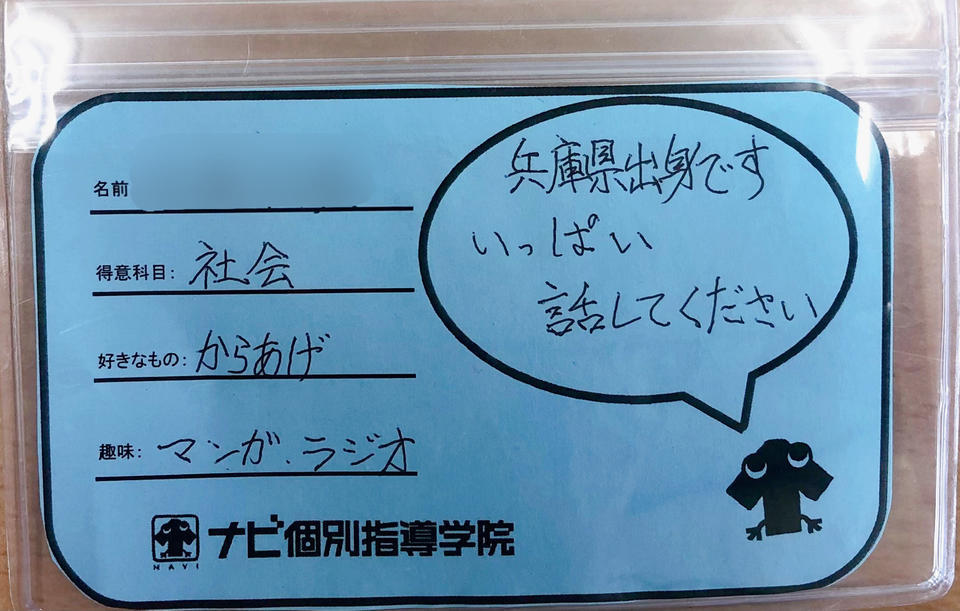 名前
得意科目: 社会
好きなもの: からあげ
趣味: マンガ、ラジオ
兵庫県出身です
いっぱい
話してください
NAVI
ナビ個別指導学院